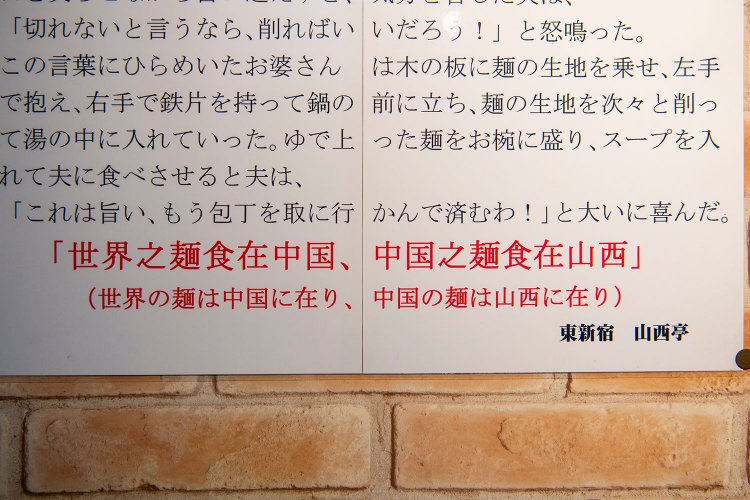 「切れないと言うなら、削ればいいだろう！」と怒鳴った。
この言葉にひらめいたお婆さんは木の板に麺の生地を乗せ、左手
で抱え、右手で鉄片を持って鍋の前に立ち、麺の生地を次々と削っ
て湯の中に入れていった。ゆで上った麺をお椀に盛り、スープを入
れて夫に食べさせると夫は、
「これは旨い、もう包丁を取に行かんで済むわ！」と大いに喜んだ。
「世界之麺食在中国、中国之麺食在山西」
（世界の麺は中国に在り、中国の麺は山西に在り）
東新宿　山西亭